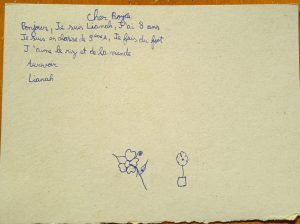 Cher Royce
Bonjour, Je suis Lianah, J'ai 8 ans
Je suis en classe de 3ème, Je fais du foot
J'aime le riz et de la viande
Aurevoir
Lianah